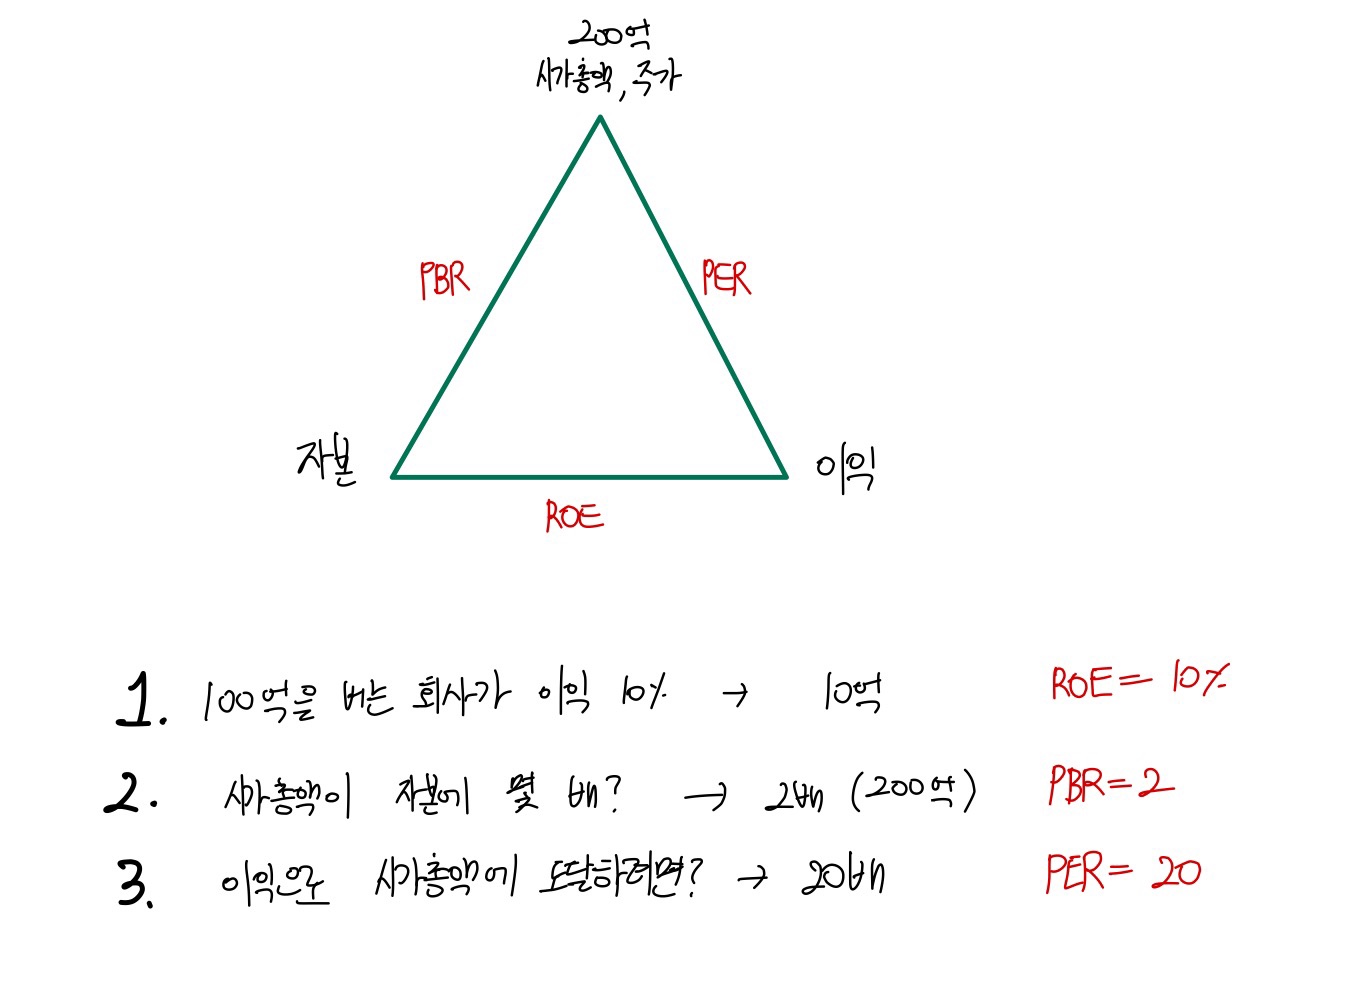 200억
시가총액, 주가
PBR
PER
자본
이익
ROE
1. 100억을 버는 회사가 이익 10% → 10억 ROE = 10%
2. 시가총액이 자본에 몇 배? → 2배 (200억) PBR = 2
3. 이익으로 시가총액에 도달하려면? → 20배 PER = 20